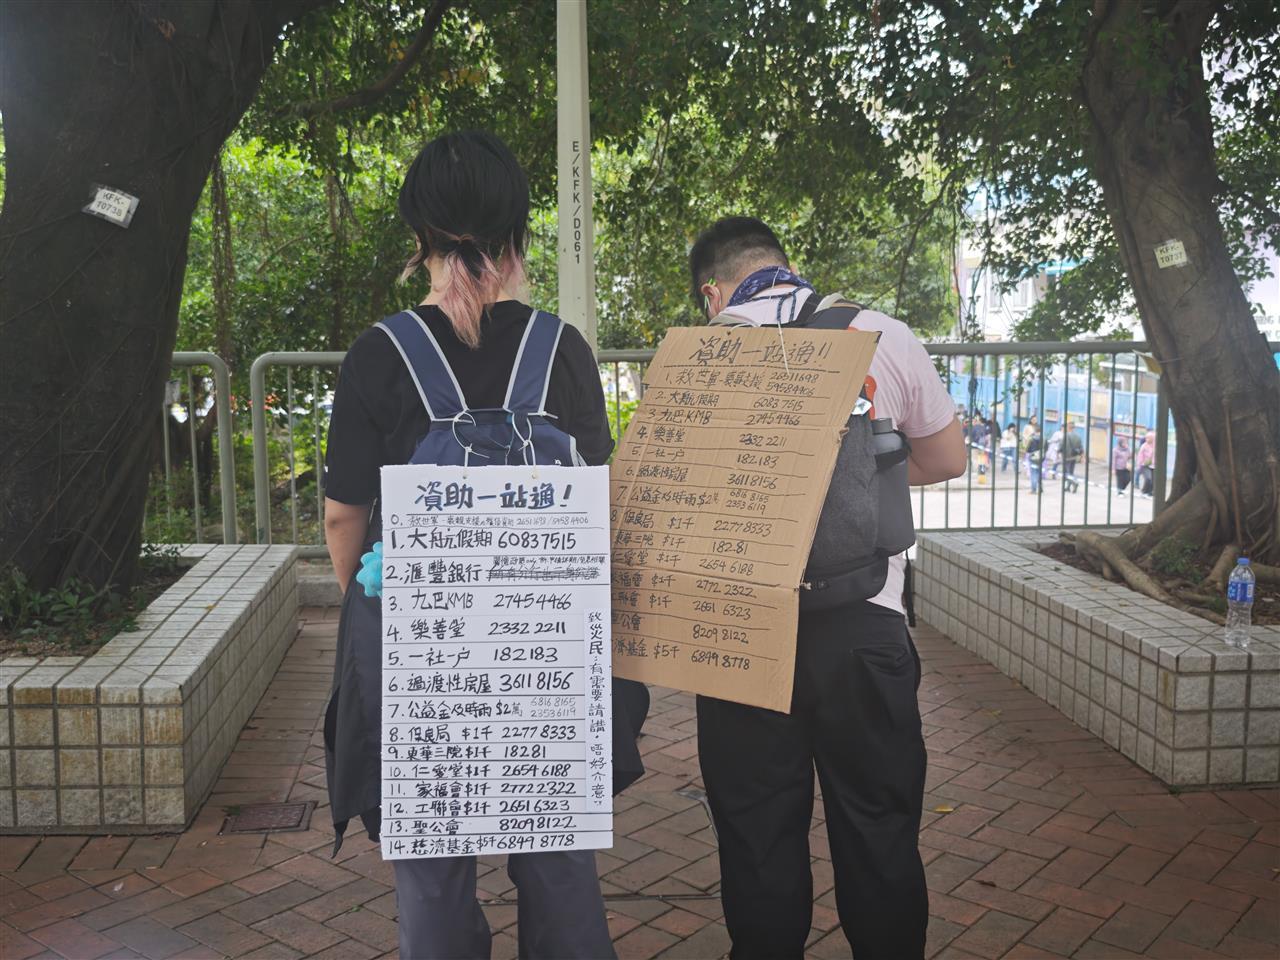 KFK-
T0738
E/KFK/D061
KFK-
T0737
資助一站通!
0. 救世軍
1. 大航假期 60837515
2. 滙豐銀行
3. 九巴KMB 27454466
4. 樂善堂 2332 2211
5. 一社一户 182183
6. 過渡性房屋 3611 8156
7. 公益金及時雨 $2萬 6816 8165
2353 6119
8. 保良局 $1千 2277 8333
9. 東華三院 $1千 18281
10. 仁愛堂 $1千 2654 6188
11. 家福會 $1千 2772 2322
12. 工聯會 $1千 2651 6323
13. 聖公會 8209 8122
14. 慈濟基金 $5千 6849 8778
致災民:有需要請講,唔好介意!
資助一站通!!
1. 救世軍 26511698
59584406
2. 大航假期 6083 7515
3. 九巴KMB 2745 4466
4. 樂善堂 2332 2211
5. 一社一户 182 183
6. 過渡性房屋 3611 8156
7 公益金及時雨 $2萬 6816 8165
2353 6119
8 保良局 $1千 2277 8333
東華三院 $1千 182.81
仁愛堂 $1千 2654 6188
家福會 $1千 2772 2322
工聯會 $1千 2651 6323
聖公會 8209 8122
濟基金 $5千 6849 8778